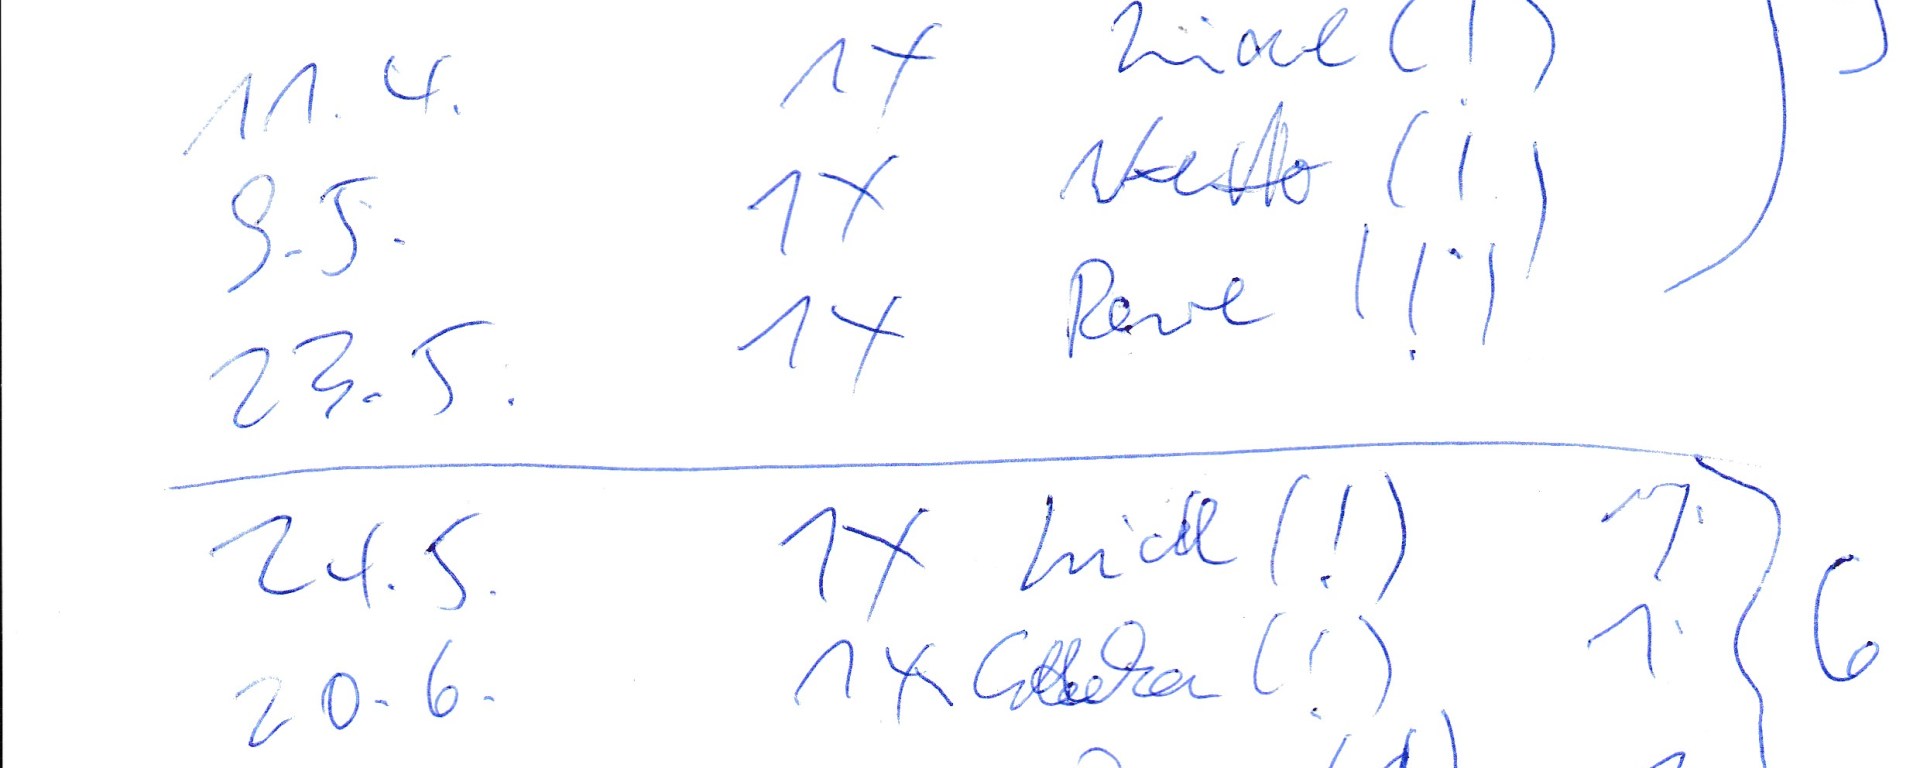 11.4. 1x Lidl (!)
9.5. 1x Netto (!)
23.5. 1x Rewe (!)
24.5. 1x Lidl (!) 1.
20.6. 1x (!) 1. 6